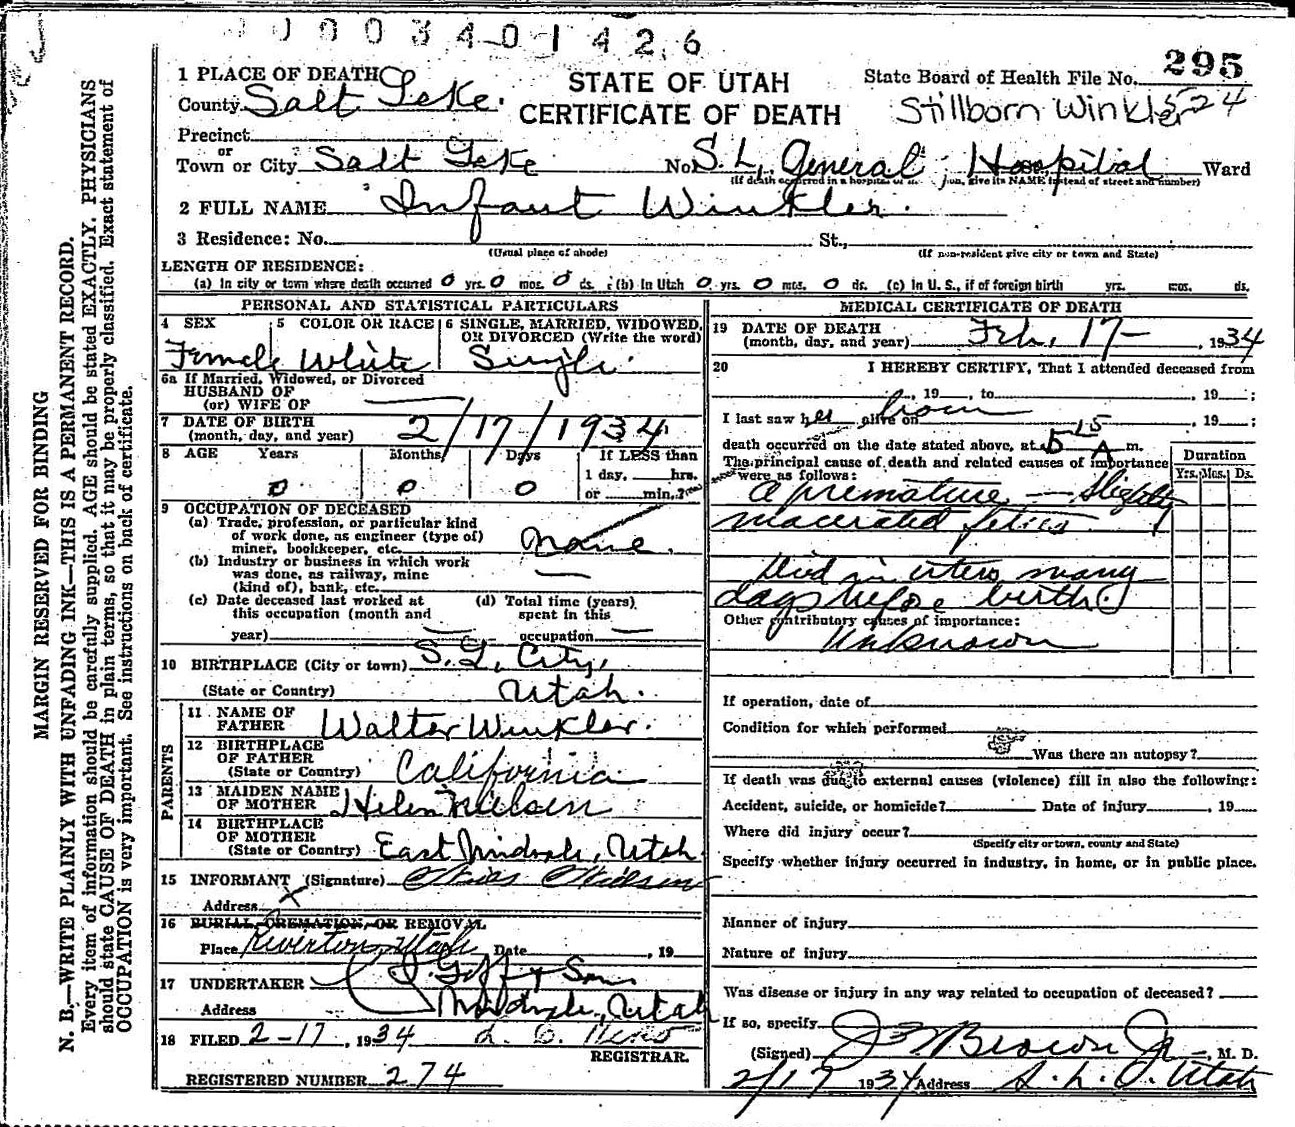 0003401426
295
1 PLACE OF DEATH
STATE OF UTAH
CERTIFICATE OF DEATH
State Board of Health File No.
Stillborn Winkler 524
County Salt Lake.
Precinct
or
Town or City Salt Lake No. S. L. General Hospital Ward
(If death occurred in a hospital or institution, give its NAME instead of street and number)
2 FULL NAME Infant Winkler.
3 Residence: No. St.,
(Usual place of abode) (If non-resident give city or town and State)
LENGTH OF RESIDENCE:
(a) In city or town where death occurred 0 yrs. 0 mos. 0 ds. (b) In Utah 0 yrs. 0 mos. 0 ds. (c) In U. S., if of foreign birth yrs. mos. ds.
PERSONAL AND STATISTICAL PARTICULARS
4 SEX 5 COLOR OR RACE 6 SINGLE, MARRIED, WIDOWED, OR DIVORCED (Write the word)
Female White Single
6a If Married, Widowed, or Divorced
HUSBAND OF
(or) WIFE OF
7 DATE OF BIRTH
(month, day, and year) 2/17/1934
8 AGE Years Months Days If LESS than
1 day, hrs.
or min.?
0 0 0
9 OCCUPATION OF DECEASED
(a) Trade, profession, or particular kind
of work done, as engineer (type of)
miner, bookkeeper, etc. None.
(b) Industry or business in which work
was done, as railway, mine
(kind of), bank, etc.
(c) Date deceased last worked at
this occupation (month and
year)
(d) Total time (years)
spent in this
occupation
10 BIRTHPLACE (City or town) S. L. City,
(State or Country) Utah.
PARENTS
11 NAME OF
FATHER Walter Winkler.
12 BIRTHPLACE
OF FATHER
(State or Country) California
13 MAIDEN NAME
OF MOTHER Helen Nielsen
14 BIRTHPLACE
OF MOTHER
(State or Country) East Midvale, Utah
15 INFORMANT (Signature) Nielsen
Address X
16 BURIAL, CREMATION, OR REMOVAL
Place Riverton, Utah Date , 19
17 UNDERTAKER Goff & Son
Address Midvale, Utah
18 FILED 2-17, 1934
REGISTRAR.
REGISTERED NUMBER 274
MEDICAL CERTIFICATE OF DEATH
19 DATE OF DEATH
(month, day, and year) Feb. 17- , 1934
20 I HEREBY CERTIFY, That I attended deceased from
, 19 , to , 19 ;
I last saw her alive on born , 19 ;
death occurred on the date stated above, at 5 15 A m.
The principal cause of death and related causes of importance
were as follows:
Duration
Yrs. Mos. Ds.
a premature — slightly
macerated fetus
died in utero many
days before birth.
Other contributory causes of importance:
Unknown
If operation, date of
Condition for which performed
Was there an autopsy?
If death was due to external causes (violence) fill in also the following:
Accident, suicide, or homicide? Date of injury , 19
Where did injury occur?
(Specify city or town, county and State)
Specify whether injury occurred in industry, in home, or in public place.
Manner of injury
Nature of injury
Was disease or injury in any way related to occupation of deceased?
If so, specify
(Signed) Brown Jr , M. D.
2/17 1934 Address S. L. C. Utah
MARGIN RESERVED FOR BINDING
N. B.—WRITE PLAINLY WITH UNFADING INK—THIS IS A PERMANENT RECORD.
Every item of information should be carefully supplied. AGE should be stated EXACTLY. PHYSICIANS
should state CAUSE OF DEATH in plain terms, so that it may be properly classified. Exact statement of
OCCUPATION is very important. See instructions on back of certificate.